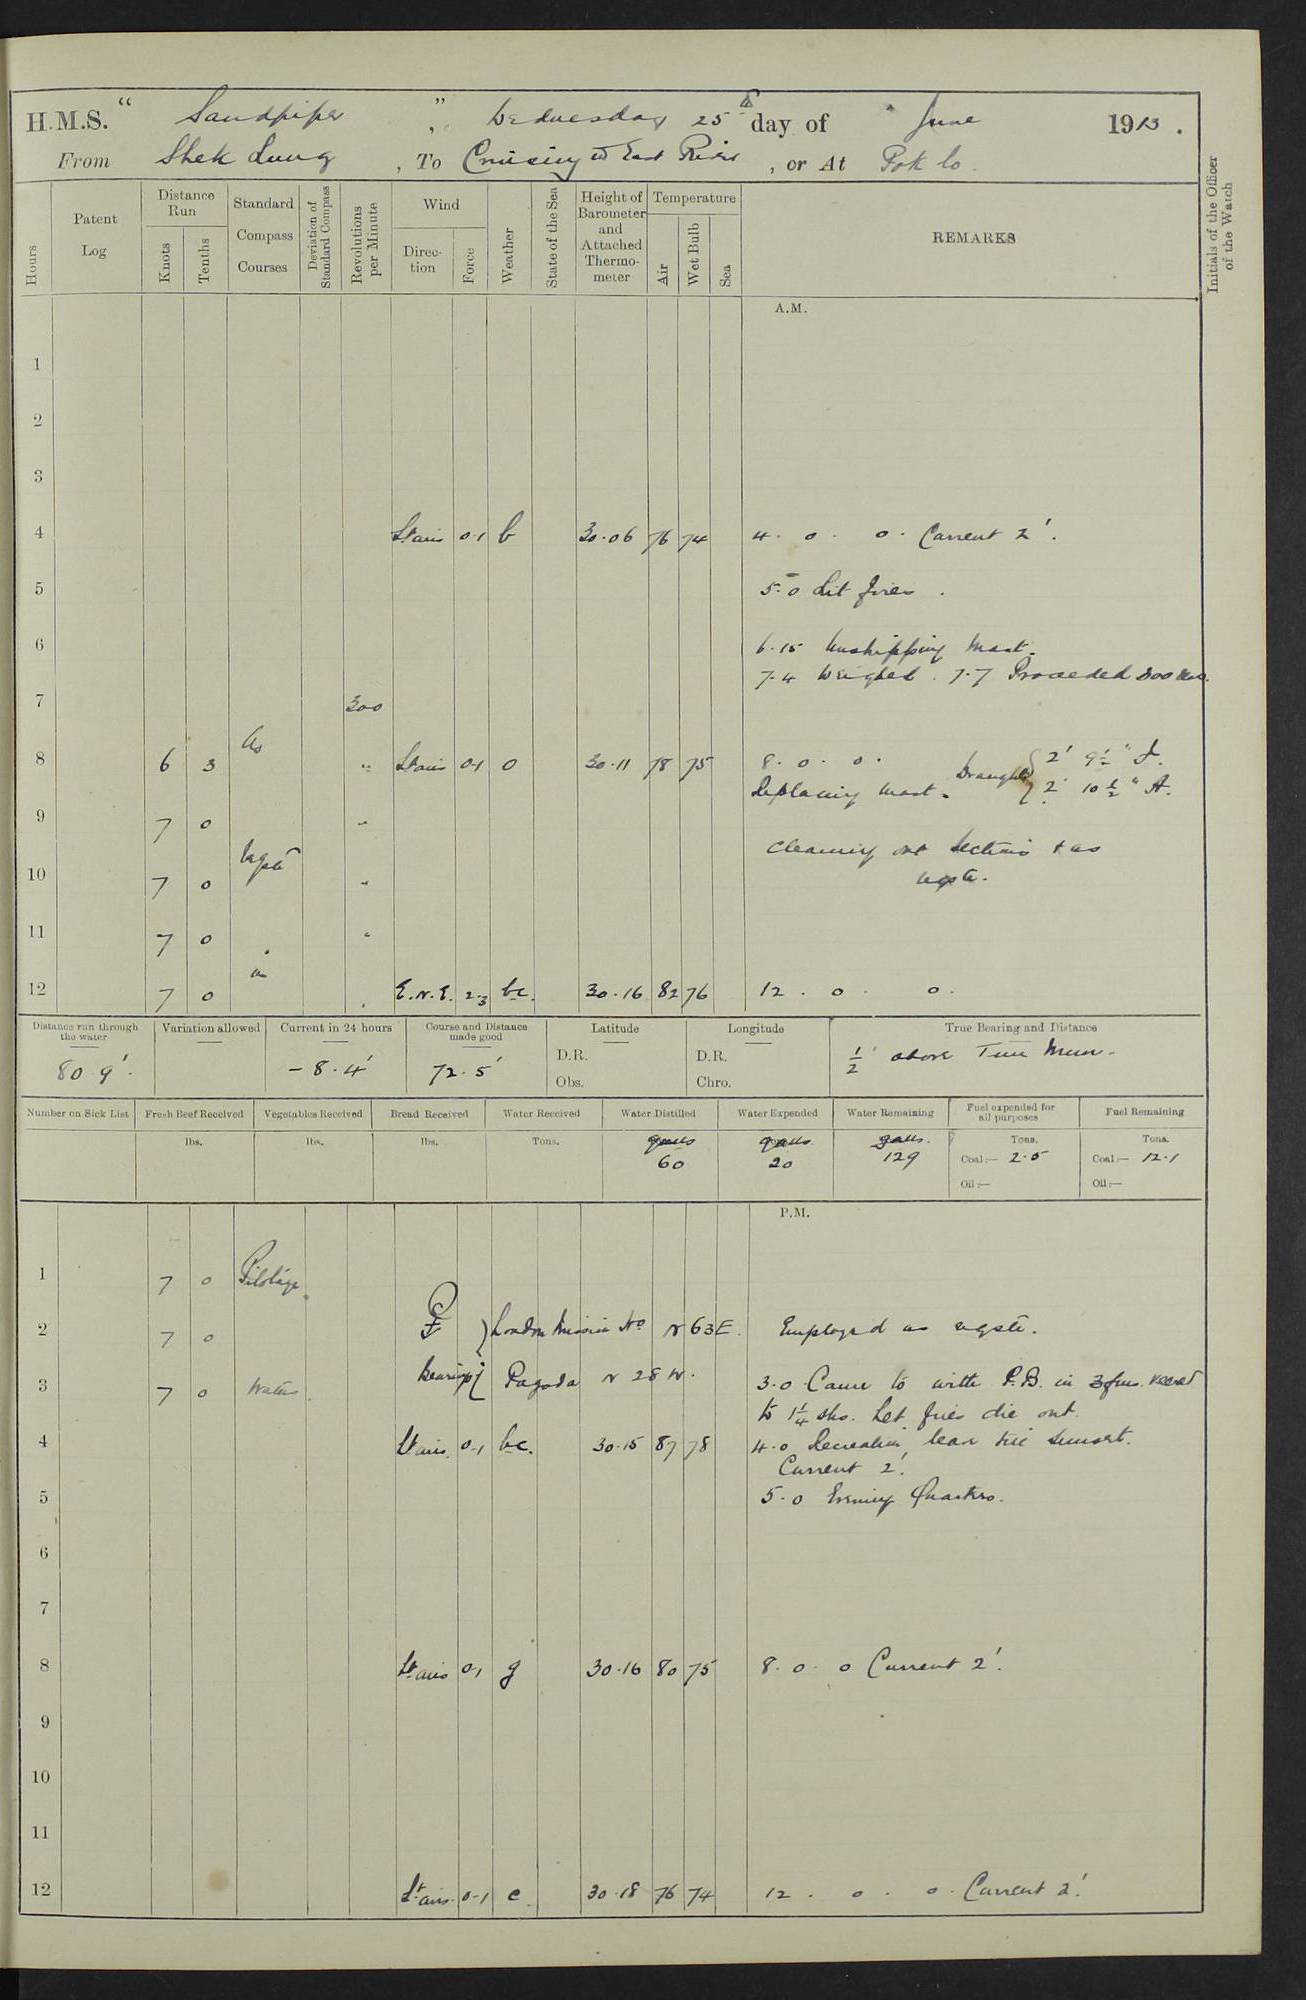 H.M.S. " Sandpiper ", Wednesday 25th day of June 1913.
From Shek Lung, To Cruising in East River, or At Pok lo.
Hours
Patent Log
Distance Run
Knots
Tenths
Standard Compass Courses
Deviation of Standard Compass
Revolutions per Minute
Wind
Direction
Force
Weather
State of the Sea
Height of Barometer and Attached Thermometer
Temperature
Air
Wet Bulb
Sea
REMARKS
Initials of the Officer of the Watch
A.M.
1
2
3
4 Lt airs 0-1 b 30.06 76 74 4. 0. 0. Current 2'.
5 5.0 Lit fires.
6 6.15 Unshipping Mast.
7.4 Weighed. 7.7 Proceeded 300 revs.
7 300
8 6 3 As " Lt airs 0-1 o 30.11 78 75 8. 0. 0. Draught { 2' 9½" F.
Replacing mast. 2' 10½" A.
9 7 0 "
Cleaning out Sections & as
10 7 0 reqte "
reqte.
11 7 0 "
12 7 0 in E.N.E. 2-3 bc. 30.16 82 76 12. 0. 0.
Distance run through the water
Variation allowed
Current in 24 hours
Course and Distance made good
Latitude
Longitude
True Bearing and Distance
80.9'. -8.4' 72.5' D.R. D.R. ½' above
Obs. Chro.
Number on Sick List
Fresh Beef Received
Vegetables Received
Bread Received
Water Received
Water Distilled
Water Expended
Water Remaining
Fuel expended for all purposes
Fuel Remaining
lbs. lbs. lbs. Tons. galls galls galls. Tons. Tons.
60 20 129 Coal:— 2.5 Coal:— 12.1
Oil:— Oil:—
P.M.
1 7 0 Pilotage
2 7 0 London Mission Ho N 63 E. Employed as reqte.
3 7 0 Waters Bearings Pagoda N 28 W. 3.0 Came to with P.B. in 3 fms. veered
to 1¼ shs. Let fires die out.
4 Lt airs. 0-1 bc. 30.15 87 78 4.0 Recreation leave till Sunset.
Current 2'.
5 5.0 Evening Quarters.
6
7
8 Lt airs 0-1 g 30.16 80 75 8. 0. 0 Current 2'.
9
10
11
12 Lt airs. 0-1 c 30.18 76 74 12. 0. 0. Current 2'.